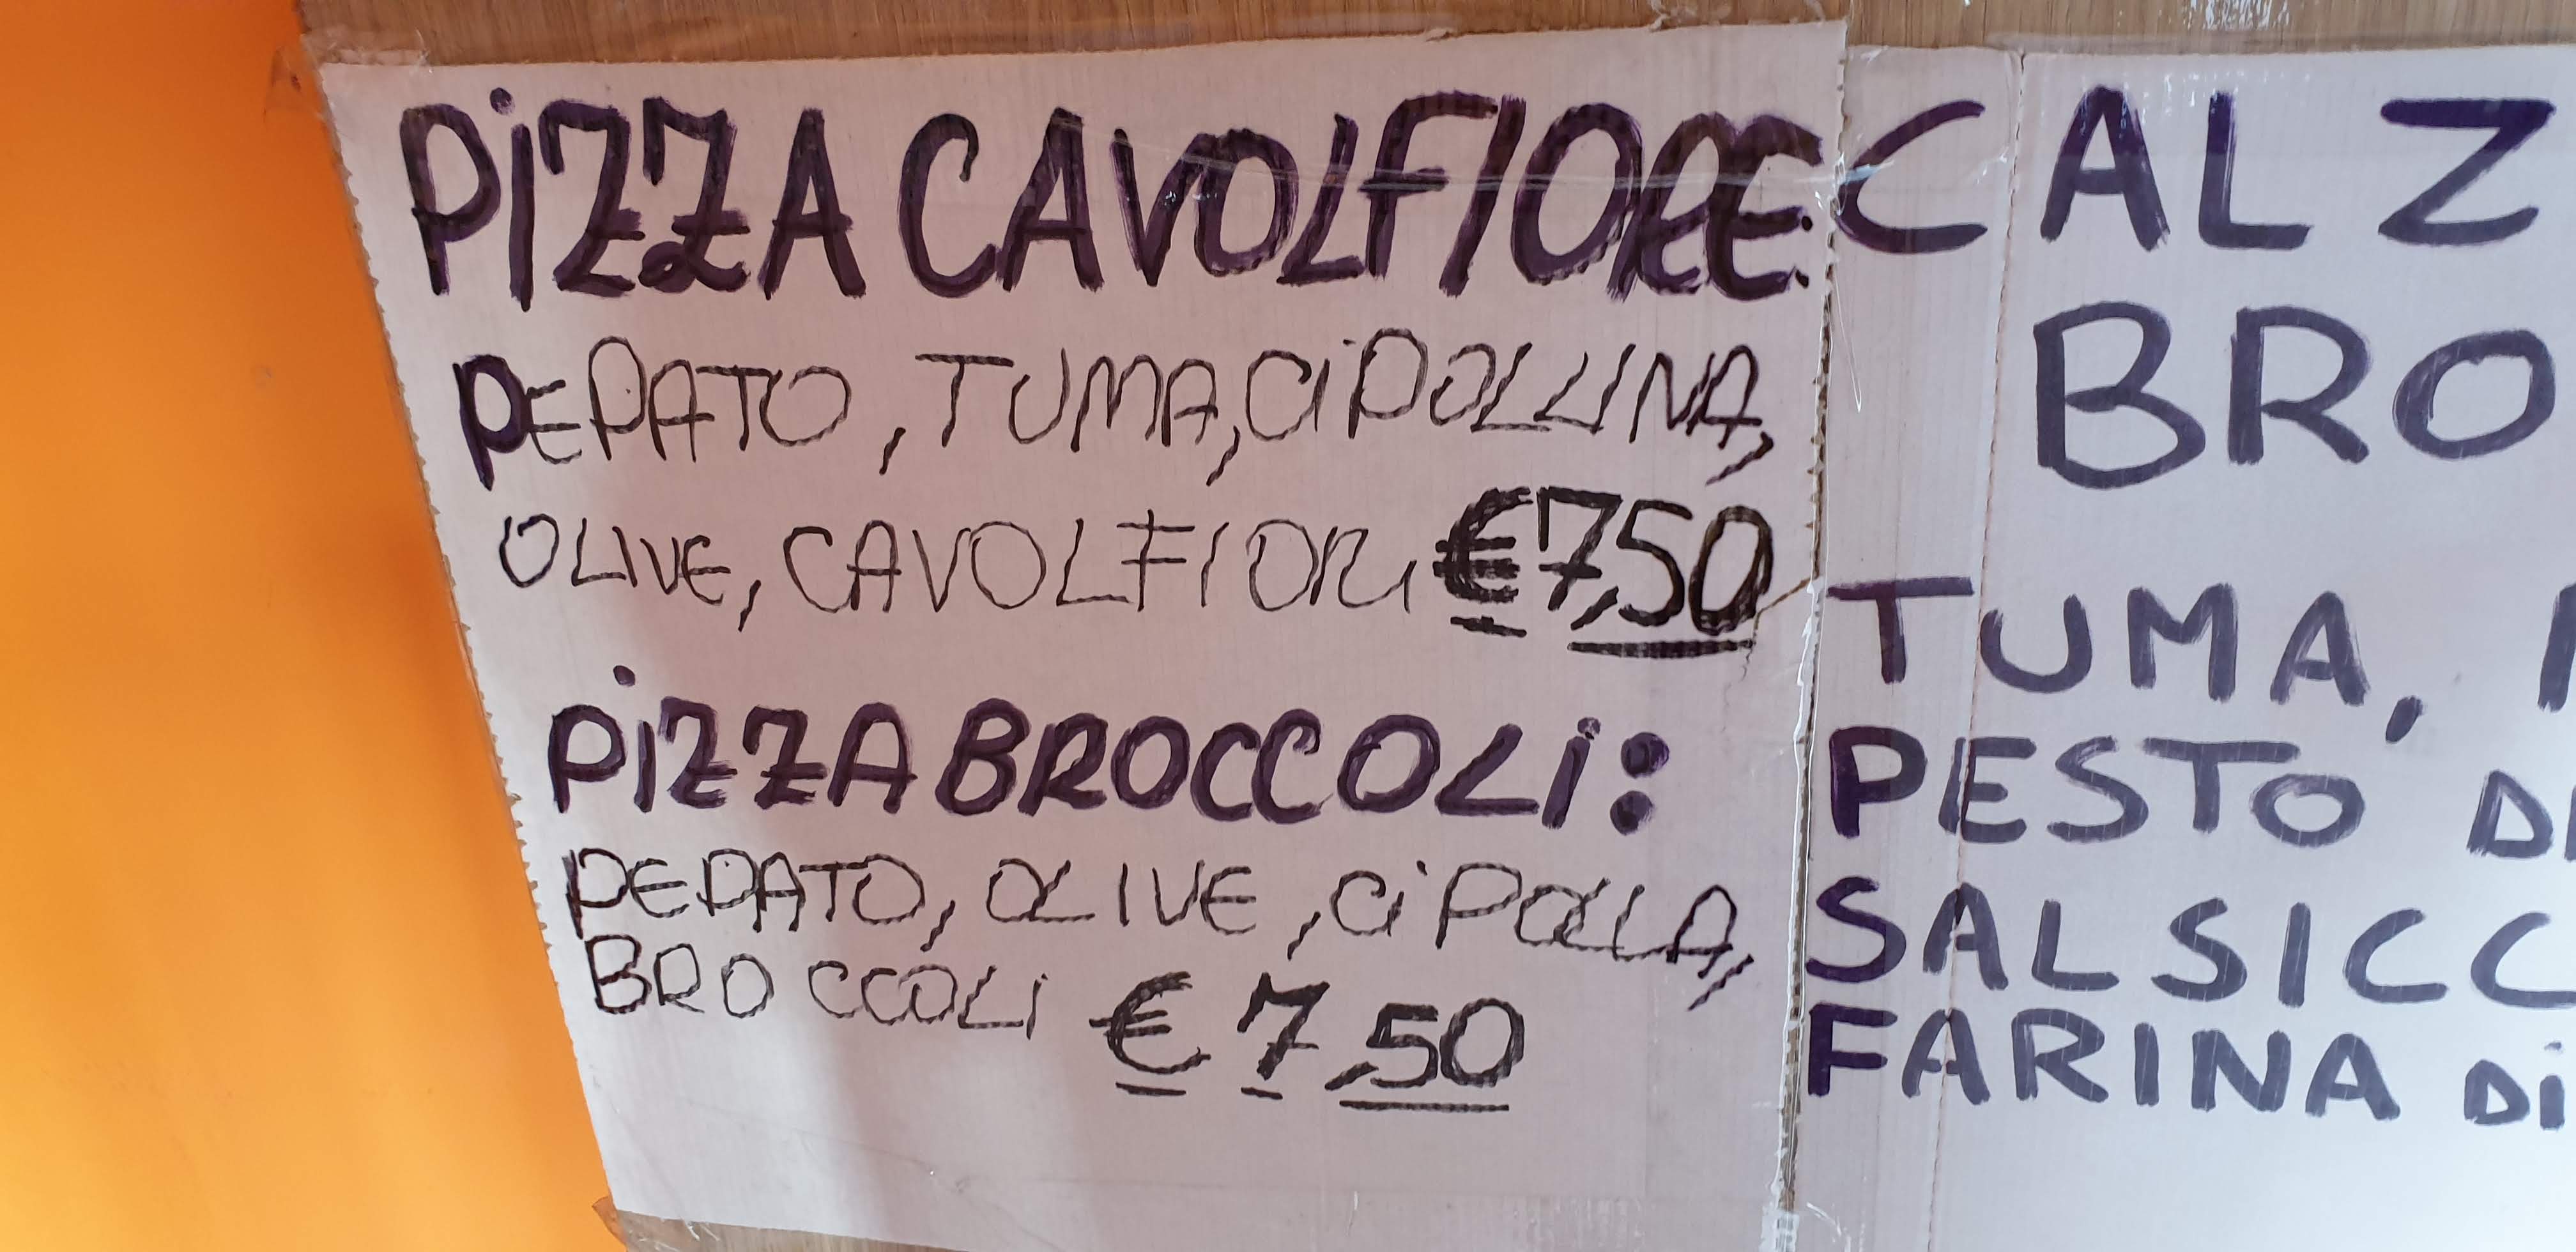 PiZZA CAVOLFIORE:
PEPATO, TUMA, CiPOLLINA,
OLIVE, CAVOLFIORI €7,50
PiZZA BROCCOLi:
PEPATO, OLIVE, CiPOLLA,
BROCCOLI € 7,50
CALZ
BRO
TUMA,
PESTO Di
SALSICC
FARINA Di